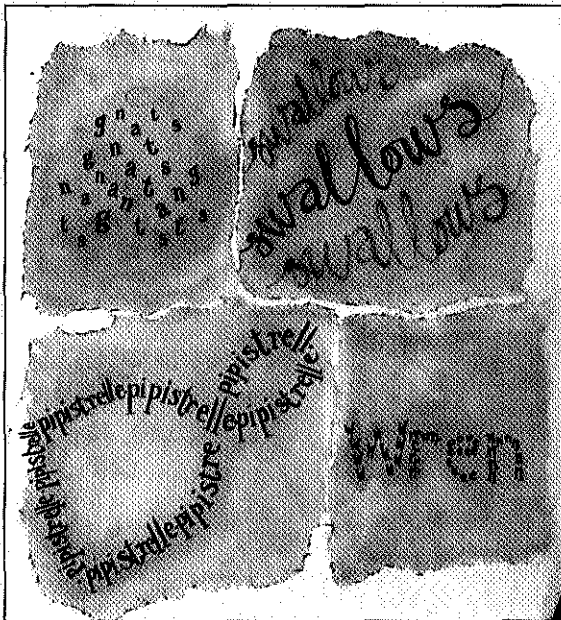 gnats
gnats
gnats
swallows
swallows
swallows
pipistrelle
pipistrellepipistrellepipistrelle
pipistrelle pipistrelle
pipistrellepipistre
wren